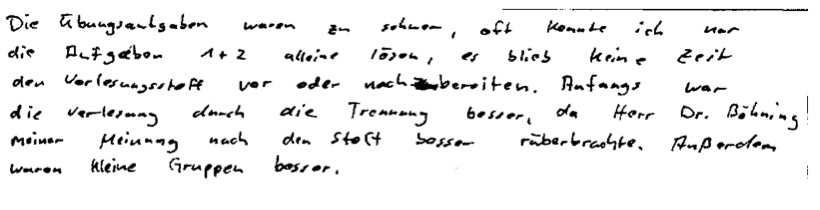 Die Übungsaufgaben waren zu schwer, oft konnte ich nur
die Aufgaben 1+2 alleine lösen, es blieb keine Zeit
den Vorlesungsstoff vor oder nachzubereiten. Anfangs war
die Vorlesung durch die Trennung besser, da Herr Dr. Böhning
meiner Meinung nach den Stoff besser rüberbrachte. Außerdem
waren kleine Gruppen besser.